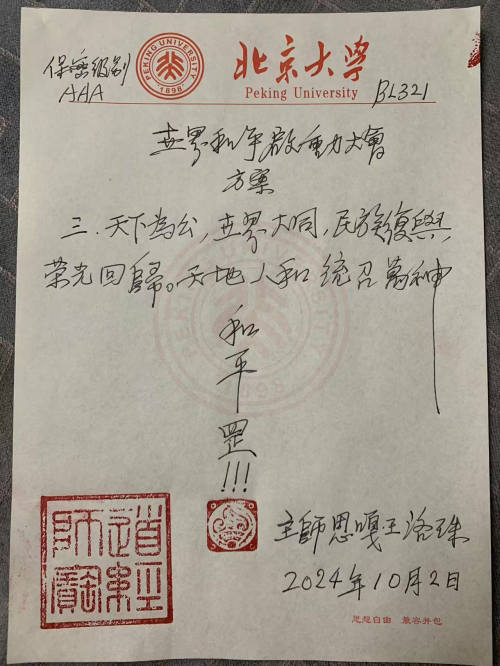 保密级别
AAA
PEKING UNIVERSITY
1898
北京大学
Peking University
BL321
世界和平啟動大會
方案
三.天下為公,世界大同,民族復興
榮光回歸。天地人和 統召萬神
和
平
罡
!!!
道經
師寶
主師恩嘎·王洛珠
2024年10月2日
思想自由 兼容并包